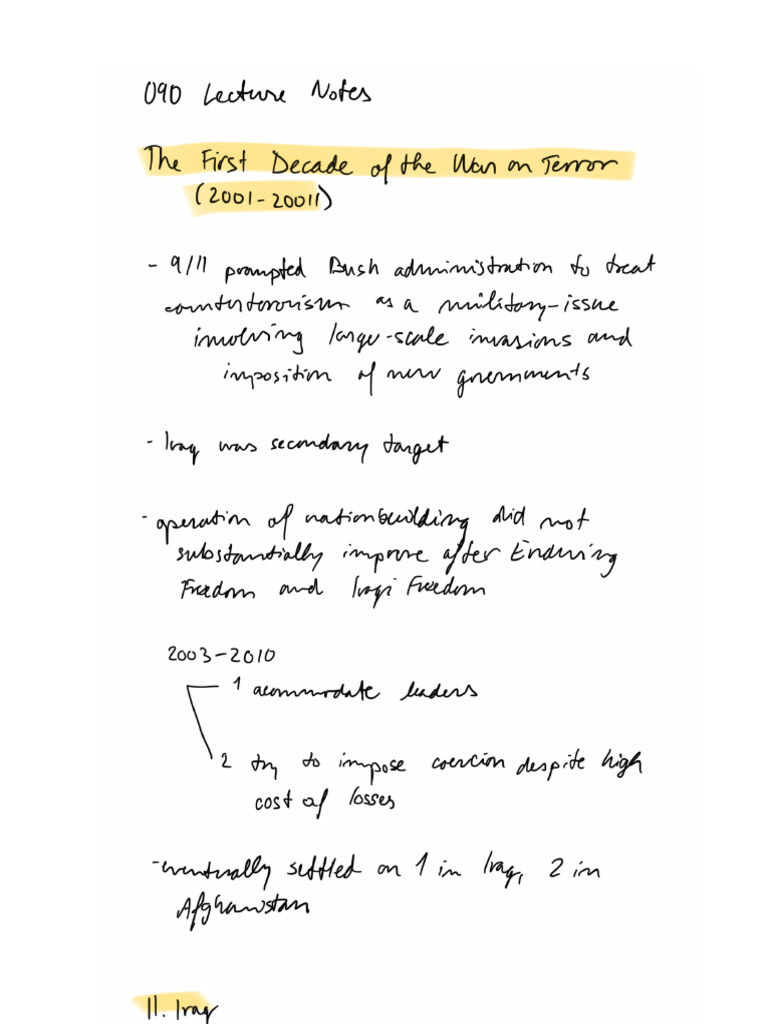 090 Lecture Notes
The First Decade of the War on Terror
(2001-20011)
- 9/11 prompted Bush administration to treat
counterterorism as a military-issue
involving large-scale invasions and
imposition of new governments
- Iraq was secondary target
- operation of nationbuilding did not
substantially improve after Enduring
Freedom and Iraqi Freedom
2003-2010
1 acommodate leaders
2 try to impose coercion despite high
cost of losses
- eventually settled on 1 in Iraq, 2 in
Afghanistan
II. Iraq